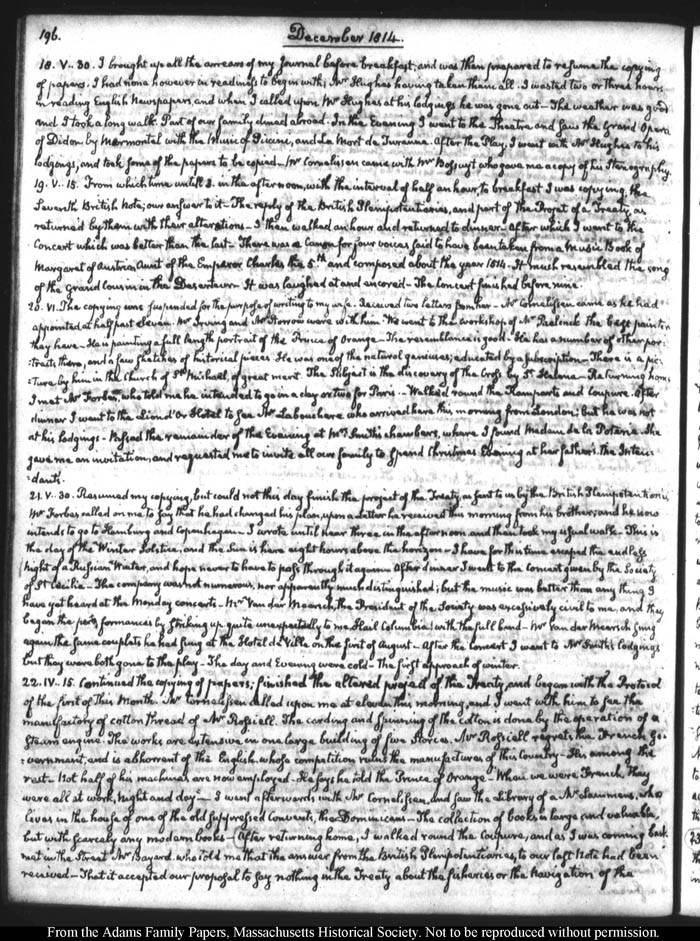 196.
December 1814.
18. V. 30. I brought up all the arrears of my Journal before breakfast; and was then prepared to resume the copying
of papers. I had none however in readiness to begin with; Mr Hughes having taken them all. I wasted two or three hours
in reading English Newspapers, and when I called upon Mr Hughes at his lodgings he was gone out— The weather was good
and I took a long walk. Part of our family dined abroad. In the Evening I went to the Theatre and saw the Grand Opera
of Didon by Marmontel with the Music of Piccini, and La Mort de Turenne. After the Play, I went with Mr Hughes to his
lodgings, and took some of the papers to be copied— Mr Cornelissen came with Mr Bossuyt who gave me a copy of his Stenography.
19. V. 15. From which time untill 3. in the afternoon, with the interval of half an hour, to breakfast I was copying the
Seventh British Note; our answer to it— The reply of the British Plenipotentiaries, and part of the Projet of a Treaty, as
returned by them with their alterations— I then walked an hour and returned to dinner— After which I went to the
Concert which was better than the last— There was a Canon for four voices said to have been taken from a Music Book of
Margaret of Austria Aunt of the Emperor Charles the 5th and composed about the year 1514— It much resembled the song
of the grand cousin in the Deserteur— It was laughed at and encored— The Concert finished before nine.
20. VI. The copying were suspended for the purpose of writing to my wife— Received two Letters from her— Mr Cornelissen came as he had
appointed at half past eleven. Mr Irving and Mr Storrow were with him— We went to the workshop of Mr Paelinck the best painter
they have— He is painting a full length portrait of the Prince of Orange— The resemblance is good— He has a number of other por-
:traits there, and a few sketches of historical pieces. He was one of the natural geniuses, educated by a subscription— There is a pic-
:ture by him in the Church of St Michael, of great merit. The Subject is the discovery of the Cross by St Helena— Returning home
I met Mr Forbes, who told me he intended to go in a day or two for Paris.— Walked round the Ramparts and Coupure. After
dinner I went to the Lion d'Or Hotel to see Mr Labouchere who arrived here this morning from London; but he was not
at his lodgings— Passed the remainder of the Evening at Mr Smith's chambers, where I found Madam de la Potterie. She
gave me an invitation, and requested me to invite all our family to spend Christmas Evening at her father's, the Inten-
:dant.
21. V. 30. Resumed my copying, but could not this day finish the project of the Treaty, as sent to us by the British Plenipotentiaries
Mr Forbes called on me to say that he had changed his plan, upon a letter he received this morning from his brother; and he now
intends to go to Hamburg and Copenhagen— I wrote until near three in the afternoon and then took my usual walk. This is
the day of the Winter Solstice, and the Sun is here eight hours above the horizon— I have for this time escaped the endless
night of a Russian Winter, and hope never to have to pass through it again— After dinner I went to the Concert given by the Society
of St Cecilia— The company was not numerous, nor apparently much distinguished; but the music was better than any thing I
have yet heard at the Monday concerts— Mr Van der Maersch, the President of the Society was excessively civil to me, and they
began the performances by striking up quite unexpectedly to me Hail Columbia! with the full band— Mr Van der Maersch sung
again the same couplets he had sung at the Hotel de Ville on the first of August— After the Concert I went to Mr Smith's lodgings
but they were both gone to the play— The day and Evening were cold— The first approach of winter.
22. IV. 15. Continued the copying of papers; finished the altered project of the Treaty, and began with the Protocol
of the first of this Month. Mr Cornelissen called upon me at eleven this morning, and I went with him to see the
manufactory of cotton thread of Mr Rosseell. The carding and spinning of the cotton is done by the operation of a
steam engine. The works are extensive in one large building of five stories. Mr Rosseell regrets the French go-
:vernment, and is abhorrent of the English, whose competition ruins the manufactures of this Country— His among the
rest— Not half of his machines are now employed— He says he told the Prince of Orange— When we were French, they
were all at work, night and day— I went afterwards with Mr Cornelissen, and saw the Library of a Mr Lammens, who
lives in the house of one of the old suppressed Convents, the Dominicans— The collection of books is large and valuable,
but with scarcely any modern books— After returning home, I walked round the Coupure, and as I was coming back
met in the Street Mr Bayard who told me that the answer from the British Plenipotentiaries, to our last Note had been
received— That it accepted our proposal to say nothing in the Treaty about the fisheries or the Navigation of the
From the Adams Family Papers, Massachusetts Historical Society. Not to be reproduced without permission.